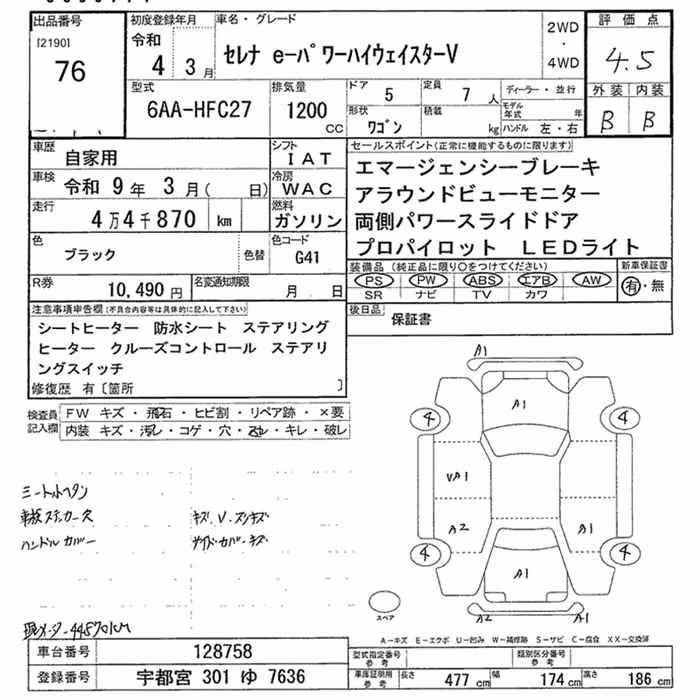 出品番号
[2190]
76
初度登録年月
令和
4 3月
車名・グレード
セレナ e-パワーハイウェイスターV
2WD
・
4WD
評価点
4.5
外装 内装
B B
型式
6AA-HFC27
排気量
1200
cc
ドア 5
定員 7 人
形状
ワゴン
積載 kg
ディーラー・並行
モデル年式 年
ハンドル 左・右
車歴 自家用
シフト IAT
車検 令和 9年 3月( 日)
冷房 WAC
走行 4万4千870 km
燃料 ガソリン
色 ブラック
色替
色コード G41
R券 10,490円
名変通知期限 月 日
セールスポイント(正常に機能するものに限ります)
エマージェンシーブレーキ
アラウンドビューモニター
両側パワースライドドア
プロパイロット LEDライト
装備品(純正品に限り○をつけてください)
PS PW ABS エアB AW
SR ナビ TV カワ
新車保証書
有・無
後日品 保証書
注意事項申告欄(不具合内容等は具体的に記入して下さい)
シートヒーター 防水シート ステアリング
ヒーター クルーズコントロール ステアリ
ングスイッチ
修復歴 有〔箇所 〕
検査員記入欄
FW キズ・飛石・ヒビ割・リペア跡・×要
内装 キズ・汚レ・コゲ・穴・コゲ・キレ・破レ
ハンドルカバー
A1
A1
4 4
VA1
A2 A1
4 4
A1
A2 A1
スペア
A-キズ E-エクボ U-凹み W-補修跡 S-サビ C-腐食 XX-交換済
現メーター44870KM
車台番号 128758
登録番号 宇都宮 301 ゆ 7636
型式指定番号 参考
類別区分番号 参考
車庫証明用 参考
長さ 477cm 幅 174cm 高さ 186cm